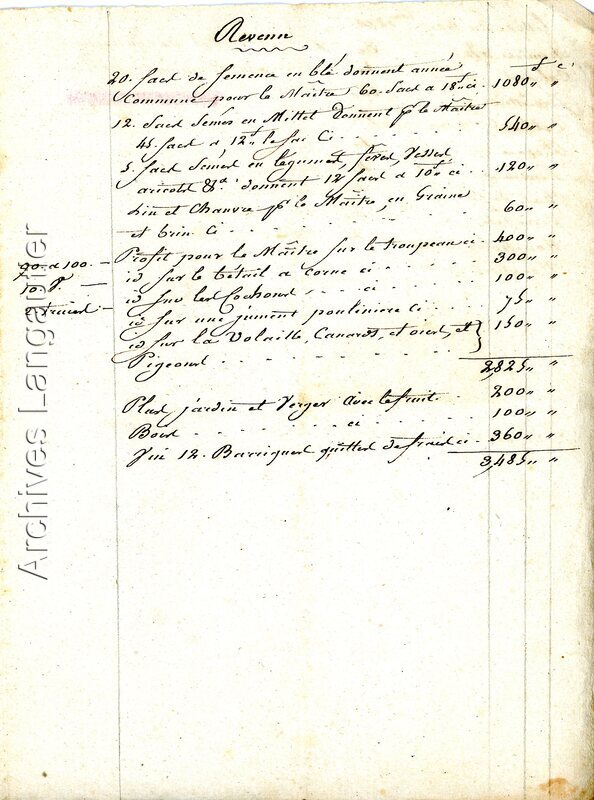 Revenu
f c.
20. Sacs de Semence en blé donnent année
Commune pour le Maître 60. Sacs a 18 f ci. 1080 〃 〃
12. Sacs Semés en Millet Donnent pr le Maître
45. Sacs a 12 f le Sac Ci . . . 540 〃 〃
5. Sacs Semés en légumes, feves, Vesses
aricots &a donnent 12 Sacs a 10 f ci . 120 〃 〃
Lin et Chanvre pr le Maître, en Graine
et brin Ci . . . 60 〃 〃
Profit pour le Maître sur le troupeau ci . 400 〃 〃
90. a 100. — id sur le bétail a corne ci . . 300 〃 〃
10. — id sur les Cochons . . ci . . 100 〃 〃
2 truies — id sur une jument pouliniere ci . . 75 〃 〃
id sur la Volaille, Canards, et oies, et } 150 〃 〃
Pigeons . . .
2,825 〃 〃
Plus jardin et Verger avec le fruit . 200 〃 〃
Bois . . . ci . . . 100 〃 〃
Vin 12. Barriques quittes de frais ci . 360 〃 〃
3,485 〃 〃
Archives Langautier